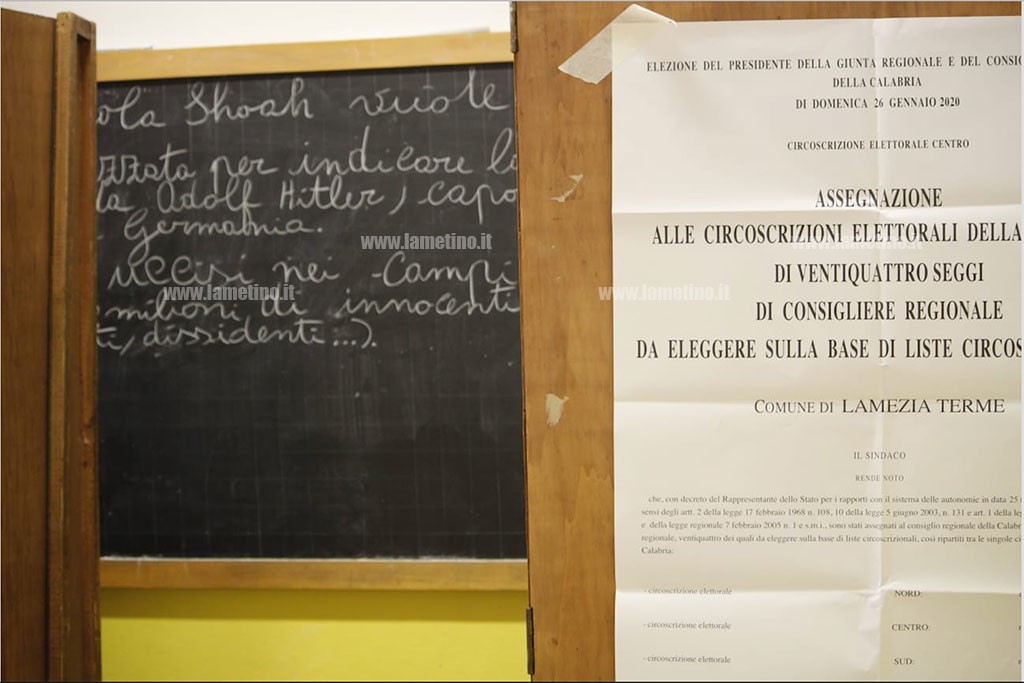 ola Shoah vuole
zzata per indicare l
la Adolf Hitler, capo
Germania.
uccisi nei Campi
milioni di innocenti
ti, dissidenti...).
www.lametino.it
www.lametino.it
ELEZIONE DEL PRESIDENTE DELLA GIUNTA REGIONALE E DEL CONSIG
DELLA CALABRIA
DI DOMENICA 26 GENNAIO 2020
CIRCOSCRIZIONE ELETTORALE CENTRO
ASSEGNAZIONE
ALLE CIRCOSCRIZIONI ELETTORALI DELLA
www.lametino.it
DI VENTIQUATTRO SEGGI
www.lametino.it
DI CONSIGLIERE REGIONALE
DA ELEGGERE SULLA BASE DI LISTE CIRCOS
COMUNE DI LAMEZIA TERME
IL SINDACO
RENDE NOTO
che, con decreto del Rappresentante dello Stato per i rapporti con il sistema delle autonomie in data 25
sensi degli artt. 2 della legge 17 febbraio 1968 n. 108, 10 della legge 5 giugno 2003, n. 131 e art. 1 della le
e della legge regionale 7 febbraio 2005 n. 1 e s.m.i., sono stati assegnati al consiglio regionale della Calabr
regionale, ventiquattro dei quali da eleggere sulla base di liste circoscrizionali, così ripartiti tra le singole ci
Calabria:
- circoscrizione elettorale NORD:
- circoscrizione elettorale CENTRO:
- circoscrizione elettorale SUD: